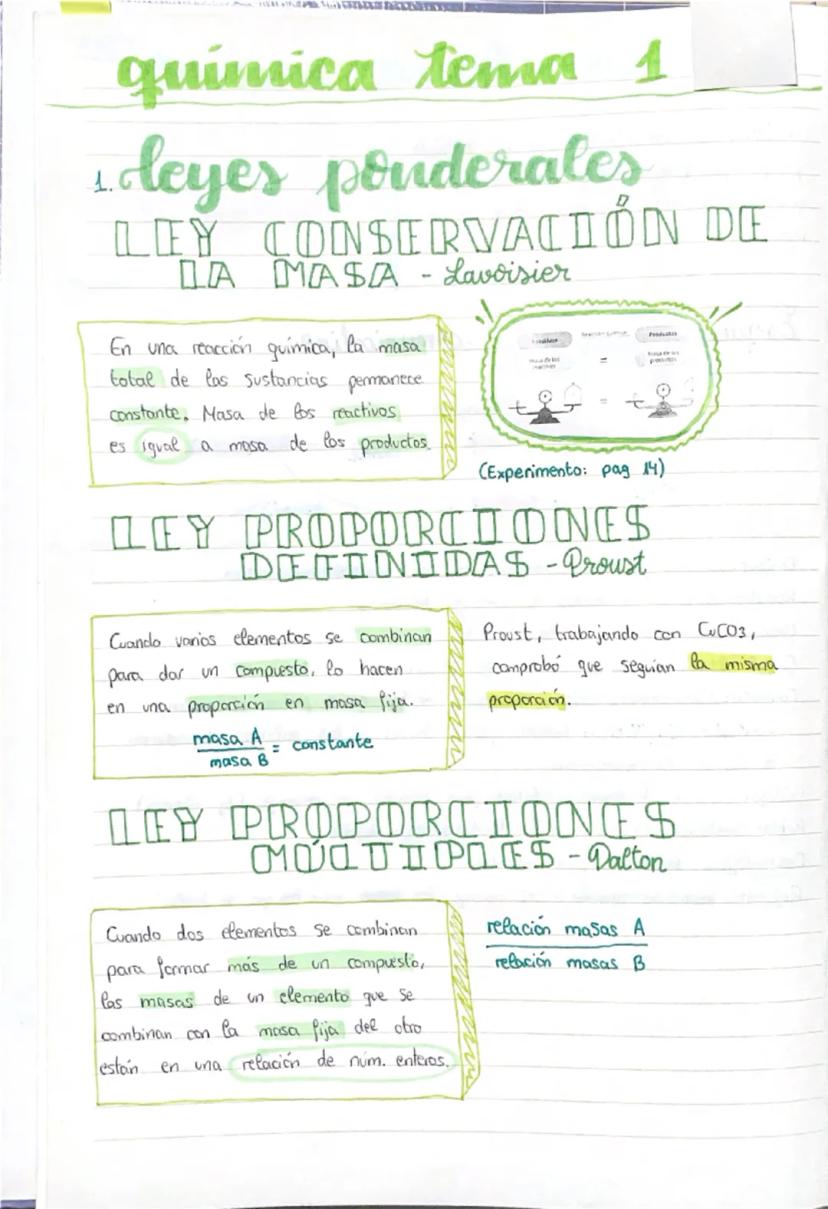 química tema 1
1. leyes ponderales
LEY CONSERVACIÓN DE
LA MASA - Lavoisier
En una reacción química, la masa
total de las sustancias permanece
constante. Masa de los reactivos
es igual a masa de los productos.
Productos
=
=
(Experimento: pag 14)
LEY PROPORCIONES
DEFINIDAS - Proust
Cuando varios elementos se combinan
para dar un compuesto, lo hacen
en una proporción en masa fija.
masa A
masa B
= constante
Proust, trabajando con CuCO3,
comprobó que seguian la misma
proporción.
LEY PROPORCIONES
MÚLTIPLES - Dalton
Cuando dos elementos se combinan
para formar más de un compuesto,
las masas de un elemento que se
combinan con la masa fija del otro
están en una relación de núm. enteros.
relación masas A
relación masas B